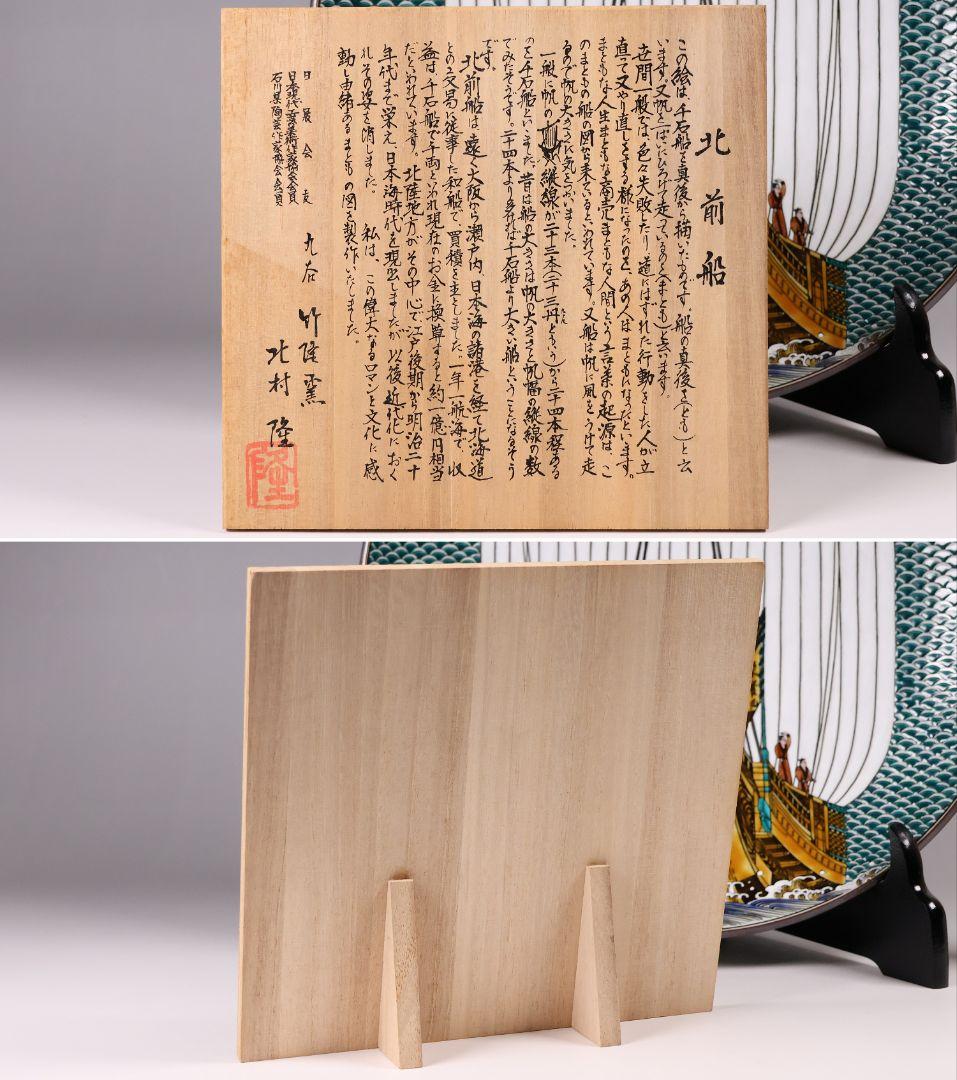 北前船
この絵は千石船を真後から描いたものです。船の真後を(とも)と云
います。又帆を一ぱいにひろげて走っているのを(まとも)と云います。
世間一般では、色々失敗したり道にはずれた行動をした人が立
直って又やり直しをする様になったのを、あの人はまともになったといます。
まともな人生まともな商売、まともな人間という言葉の起源は、こ
のまともの船の図から来ているといわれています。又船は帆に風をうけて走
るので帆の大きさに気をつかいました。
一般に帆の縦線が二十三本(二十三丹ともいう)から二十四本程ある
のを千石船といいました。昔は船の大きさは帆の大きさと帆幅の縦線の数
でみたそうです。二十四本より多ければ千石船より大きい船ということになるそう
です。
北前船は遠く大阪から瀬戸内、日本海の諸港を経て北海道
との交易に従事した和船で、買積を主としました。一年一航海で、収
益は、千石船で千両といわれ現在のお金に換算すると約一億円相当
だといわれています。北陸地方がその中心で江戸後期から明治二十
年代まで栄え、日本海時代を現出しましたが、以後近代化におく
れその姿を消しました。 私は、この偉大なるロマンと文化に感
動し由緒あるまともの図を製作いたしました。
日展会友
日本現代工芸美術作家協会会員
石川県陶芸作家協会会員
九谷 竹隆窯
北村 隆
隆